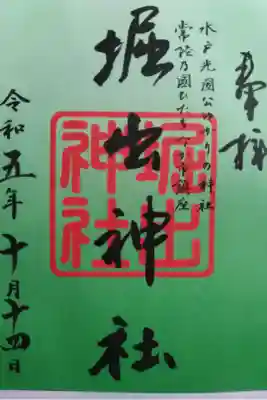 奉拝
水戸光圀公ゆかりの神社
常陸乃國ひたちなか市鎮座
堀出神社
堀出神社
令和五年十月十四日